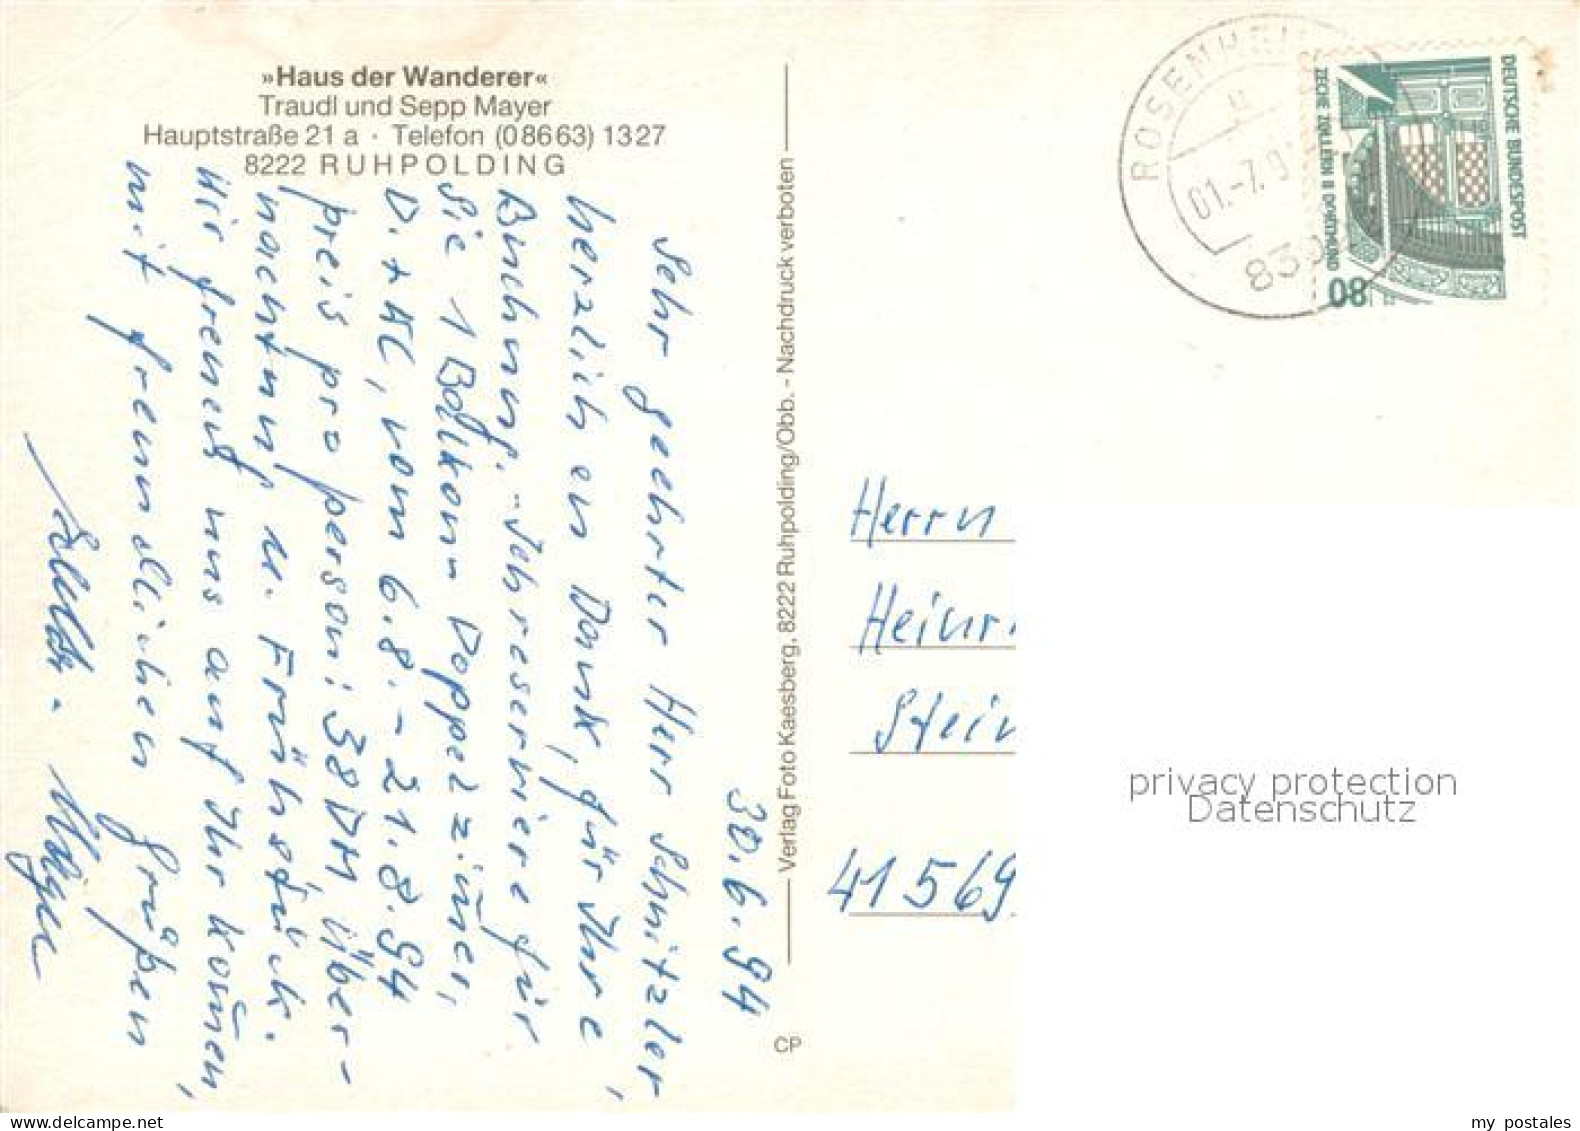 »Haus der Wanderer«
Traudl und Sepp Mayer
Hauptstraße 21 a · Telefon (08663) 1327
8222 RUHPOLDING
30.6.94
Sehr geehrter Herr Schnitzler,
herzlichen Dank, für Ihre
Buchung. Ich reserviere für
Sie 1 Balkon Doppelzimmer,
D. + WC, vom 6.8. - 21.8.94
preis pro person: 38 DM, Über-
nachtung u. Frühstück.
Wir freuen uns auf Ihr kommen,
mit freundlichen Grüßen
Verlag Foto Kaesberg, 8222 Ruhpolding/Obb. - Nachdruck verboten
CP
ROSENHEIM
01.-7.9
830
DEUTSCHE BUNDESPOST
ZECHE ZOLLERN II DORTMUND
80
Herrn
Heinr
Stein
41569
privacy protection
Datenschutz
my postales